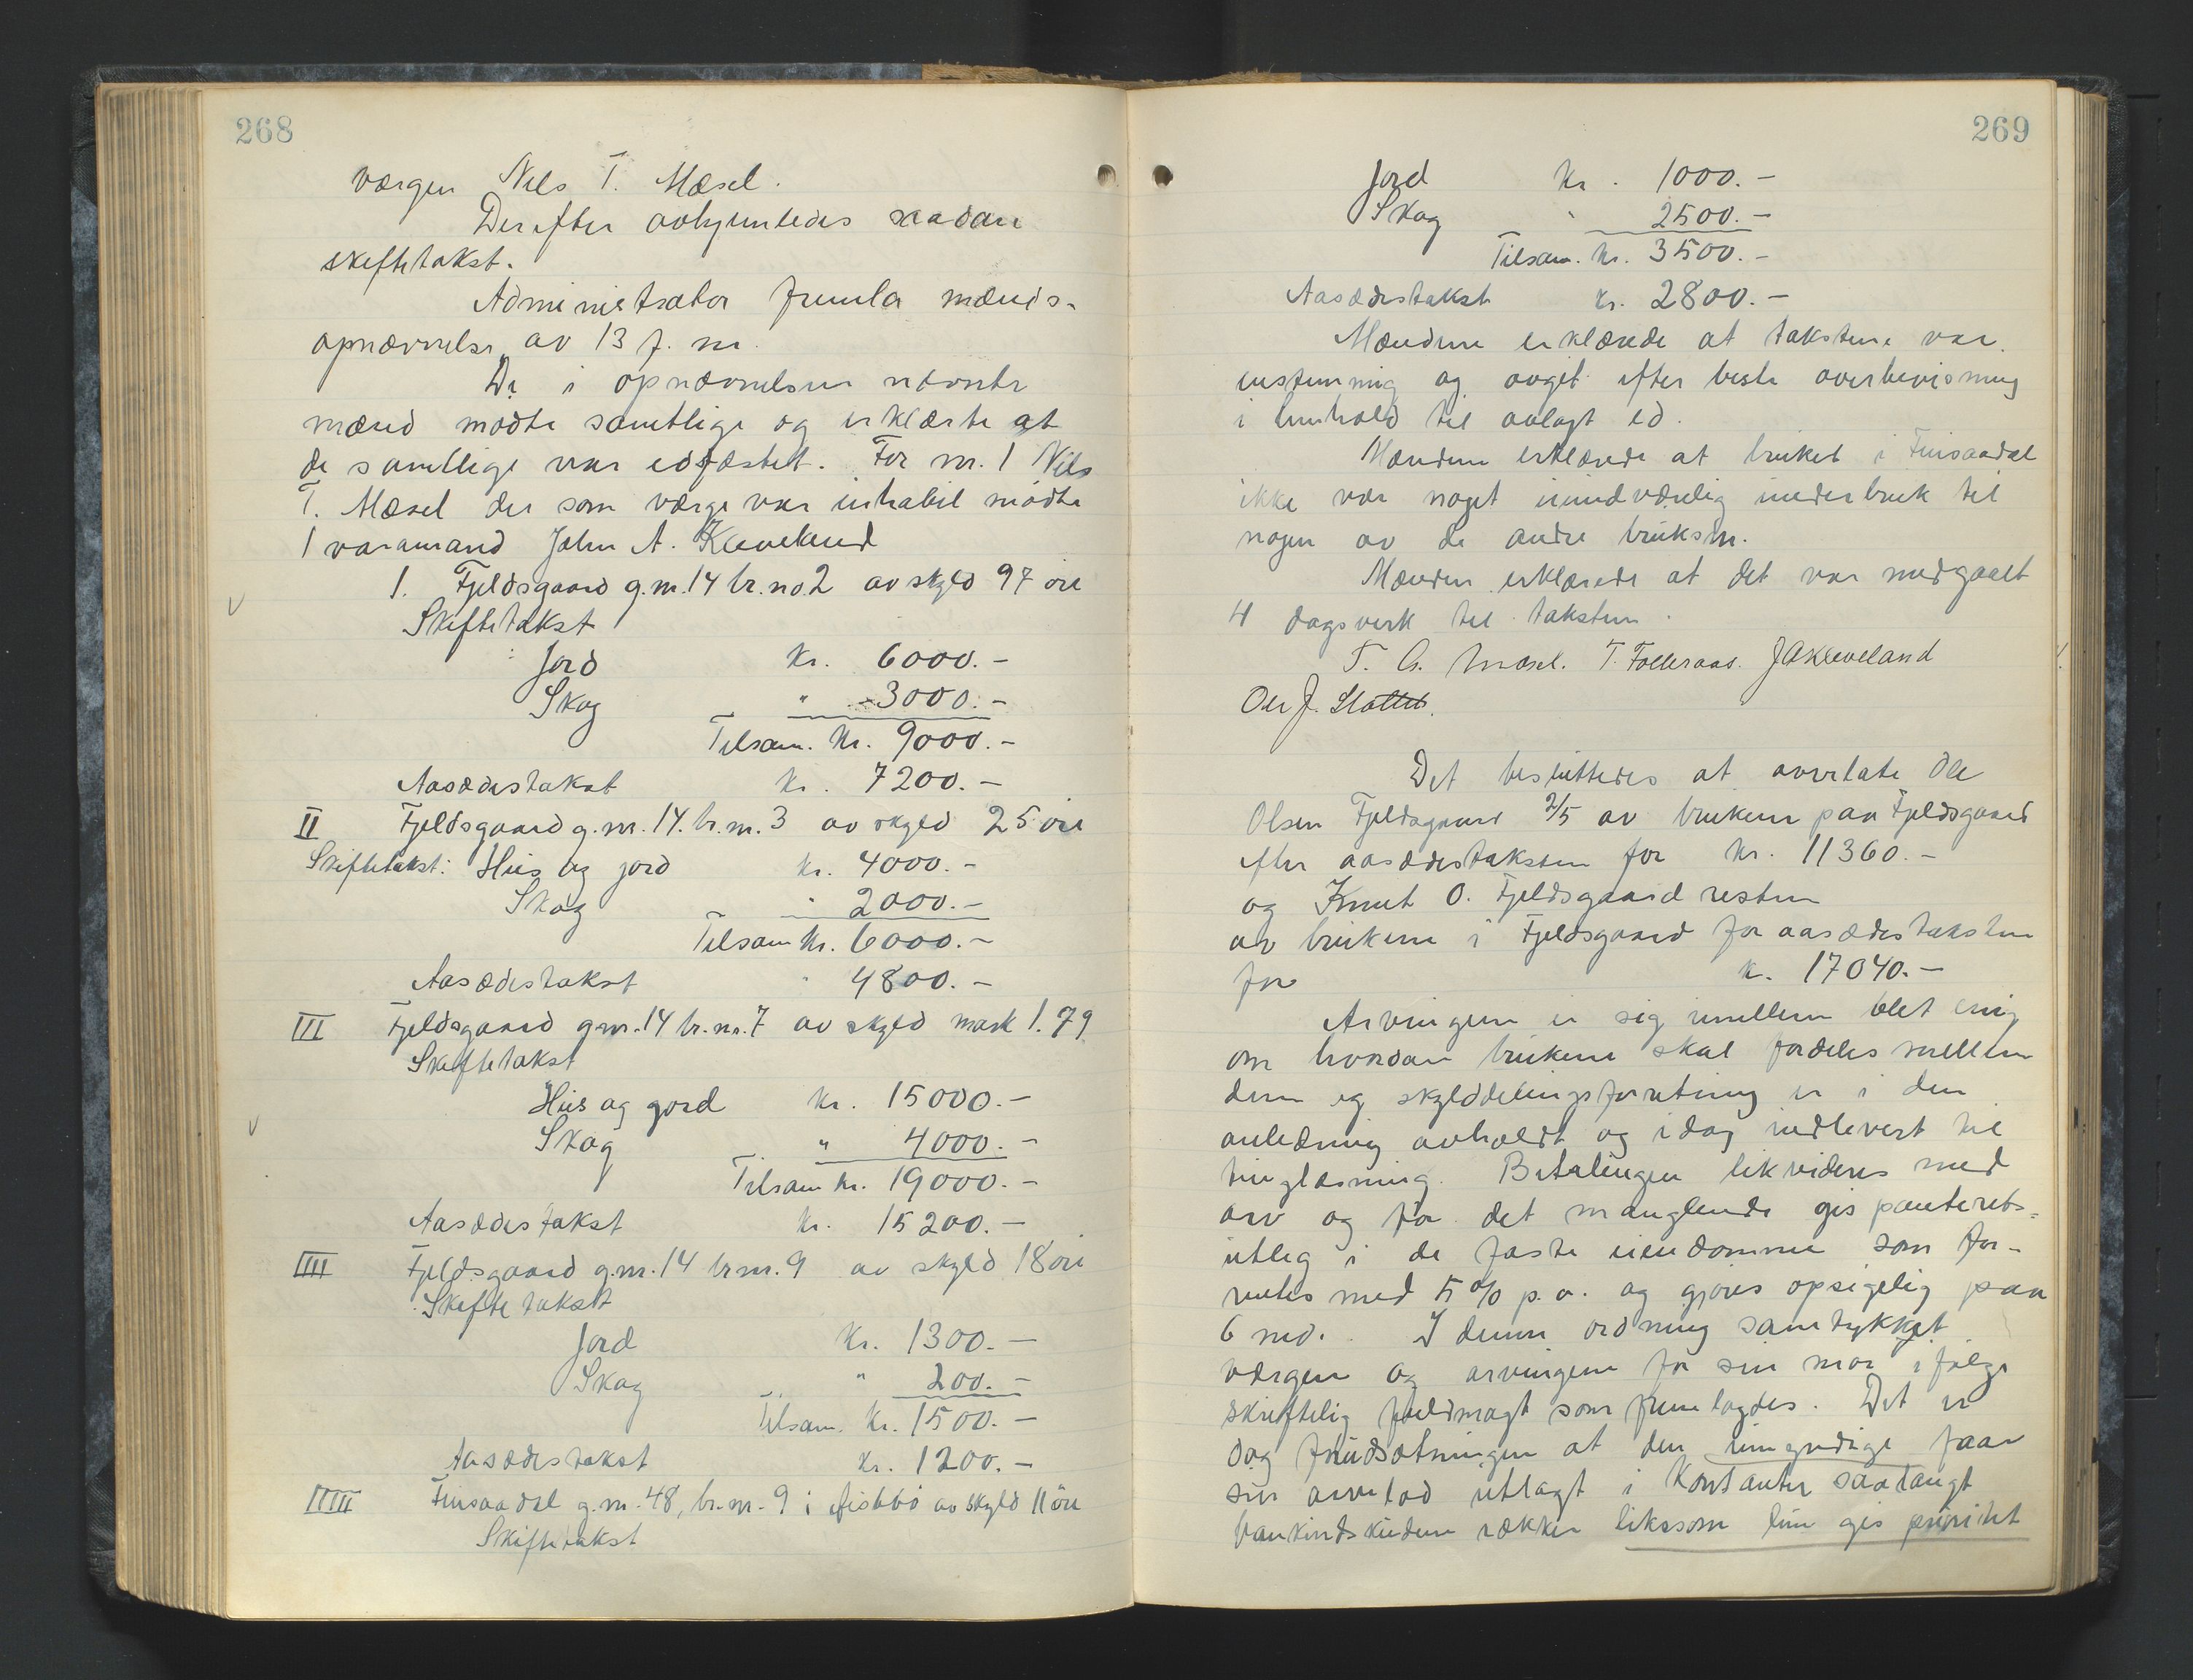 268
værgen Nils T. Mæsel.
Derefter avhjemledes saadan
skiftetakst.
Administrator fremla mænds-
opnævnelse av 13 f. m.
De i opnævnelsen nævnte
mænd mødte samtlige og erklærte at
de samtlige var edfæstet. For nr. 1 Nils
T. Mæsel der som værge var inhabil mødte
1 varamand John A. Kleveland
1. Fjeldsgaard g.nr. 14 br.no. 2 av skyld 97 øre
Skiftetakst
Jord kr. 6000.-
Skog " 3000.-
Tilsam. kr. 9000.-
Aasædestakst kr. 7200.-
II Fjeldsgaard g.nr. 14. br.nr. 3 av skyld 25 øre
Skiftetakst: Hus og jord kr. 4000.-
Skog " 2000.-
Tilsam kr. 6000.-
Aasædestakst " 4800.-
III Fjeldsgaard gnr. 14 br.nr. 7 av skyld mark 1.79
Skiftetakst
Hus og jord kr. 15000.-
Skog " 4000.-
Tilsam kr. 19000.-
Aasædestakst kr. 15200.-
IIII Fjeldsgaard g.nr. 14 br.nr. 9 av skyld 18 øre
Skiftetakst
Jord kr. 1300.-
Skog " 200.-
Tilsam. kr. 1500.-
Aasædestakst kr. 1200.-
IIIII Finsaadal g.nr. 48, br.nr. 9 i av skyld 11 øre
Skiftetakst
269
Jord kr. 1000.-
Skog " 2500.-
Tilsam. kr. 3500.-
Aasædestakst kr. 2800.-
Mændene erklærede at takstene var
enstemmig og avgit efter beste overbevisning
i henhold til avlagt ed.
Mændene erklærede at bruket i Finsaadal
ikke var noget uundværlig underbruk til
nogen av de andre bruksnr.
Mændene erklærede at det var medgaaet
4 dagsverk til taksten.
T. G. Mæsel. T. Folleraas. J A Kleveland
Ole J.
Det besluttedes at overlate Ole
Olsen Fjeldsgaard 2/5 av brukene paa Fjeldsgaard
efter aasædestaksten for kr. 11360.-
og Knut O. Fjeldsgaard resten
av brukene i Fjeldsgaard for aasædestaksten
for kr. 17040.-
Arvingene er sig imellem blet enig
om hvordan brukene skal fordeles mellem
dem og skylddelingsforretning er i den
anledning avholdt og idag indlevert til
tinglæsning. Betalingen likvideres med
arv og for det manglende gis panterets-
utlæg i de faste eiendomme som for-
rentes med 5 % p.a. og gjøres opsigelig paa
6 md. I denne ordning samtykket
værgen og arvingene for sin mor ifølge
skriftelig fuldmagt som fremlagdes. Det er
dog forudsætningen at den umyndige faar
sin arvelod utlagt i kontanter saalangt
bankindskuddene rækker likesom hun gis prioritet